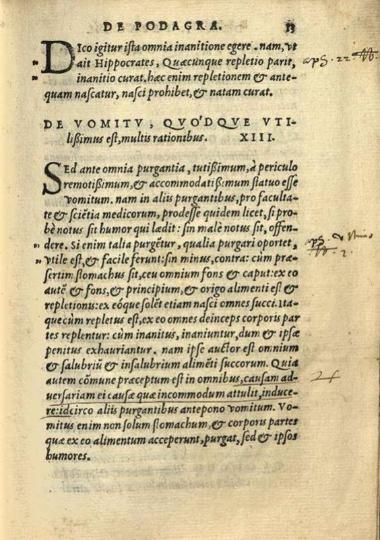 DE PODAGRA. 13
DIco igitur ista omnia inanitione egere. nam, vt
ait Hippocrates, Quæcunque repletio parit,
inanitio curat. hæc enim repletionem & ante-
quam nascatur, nasci prohibet, & natam curat.
aph. 22.
DE VOMITV, QVO'DQVE VTI-
lißimus est, multis rationibus. XIII.
SEd ante omnia purgantia, tutißimum, à periculo
remotißimum, & accommodatißimum statuo esse
vomitum. nam in aliis purgantibus, pro faculta-
te & sciētia medicorum, prodesse quidem licet, si pro-
bè notus sit humor qui lædit: sin malè notus sit, offen-
dere. Si enim talia purgētur, qualia purgari oportet,
vtile est, & facile ferunt: sin minus, contra: cùm præ-
sertim stomachus sit, ceu omnium fons & caput: ex eo
autē & fons, & principium, & origo alimenti est &
repletionis: ex eóque solēt etiam nasci omnes succi. Ita-
que cùm repletus est, ex eo omnes deinceps corporis par
tes replentur: cùm inanitus, inaniuntur, dum & ipsæ
penitus exhauriantur. nam ipse auctor est omnium
& salubriū & insalubrium alimēti succorum. Quia
autem cōmune præceptum est in omnibus, causam ad-
uersariam ei causæ quæ incommodum attulit, induce-
re: idcirco aliis purgantibus antepono vomitum. Vo-
mitus enim non solum stomachum, & corporis partes
quæ ex eo alimentum acceperunt, purgat, sed & ipsos
humores.